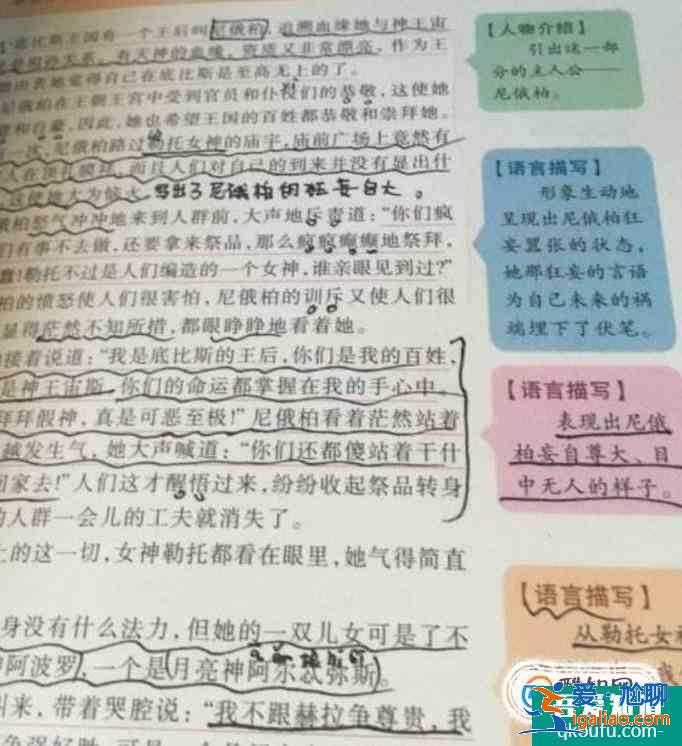 底比斯王国有一个王后叫尼俄柏,追溯血缘她与神王宙
有天神的血缘,资质又非常漂亮,作为王
她觉得自己在底比斯是至高无上的了。
尼俄柏在王朝王宫中受到官员和仆役们的恭敬,这使她
因此,她也希望王国的百姓都恭敬和崇拜她。
一次,尼俄柏路过勒托女神的庙宇,庙前广场上竟然有
人在顶礼膜拜,而且人们对自己的到来并没有显出什
这使她大为恼火。
写出了尼俄柏的狂妄自大。
俄柏怒气冲冲地来到人群前,大声地斥责道:“你们疯
们有事不去做,还要拿来祭品,那么疯疯癫癫地祭拜,
蠢!勒托不过是人们编造的一个女神,谁亲眼见到过?”
柏的愤怒使人们很害怕,尼俄柏的训斥又使人们很
显得茫然不知所措,都眼睁睁地看着她。
接着说道:“我是底比斯的王后,你们是我的百姓,
是神王宙斯,你们的命运都掌握在我的手心中。
拜拜假神,真是可恶至极!”尼俄柏看着茫然站着
越发生气,她大声喊道:“你们还都傻站着干什
回家去!”人们这才醒悟过来,纷纷收起祭品转身
的人群一会儿的工夫就消失了。
上的这一切,女神勒托都看在眼里,她气得简直
身没有什么法力,但她的一双儿女可是了不
阿波罗,一个是月亮神阿尔忒弥斯。
叫来,带着哭腔说:“我不跟赫拉争尊贵,我
【人物介绍】
引出这一部
分的主人公——
尼俄柏。
【语言描写】
形象生动地
呈现出尼俄柏狂
妄嚣张的状态,
她那狂妄的言语
为自己未来的祸
端埋下了伏笔。
【语言描写】
表现出尼俄
柏妄自尊大、目
中无人的样子。
【语言描写】
从勒托女神
爱尬聊
igaliao.com
qkoufu.com